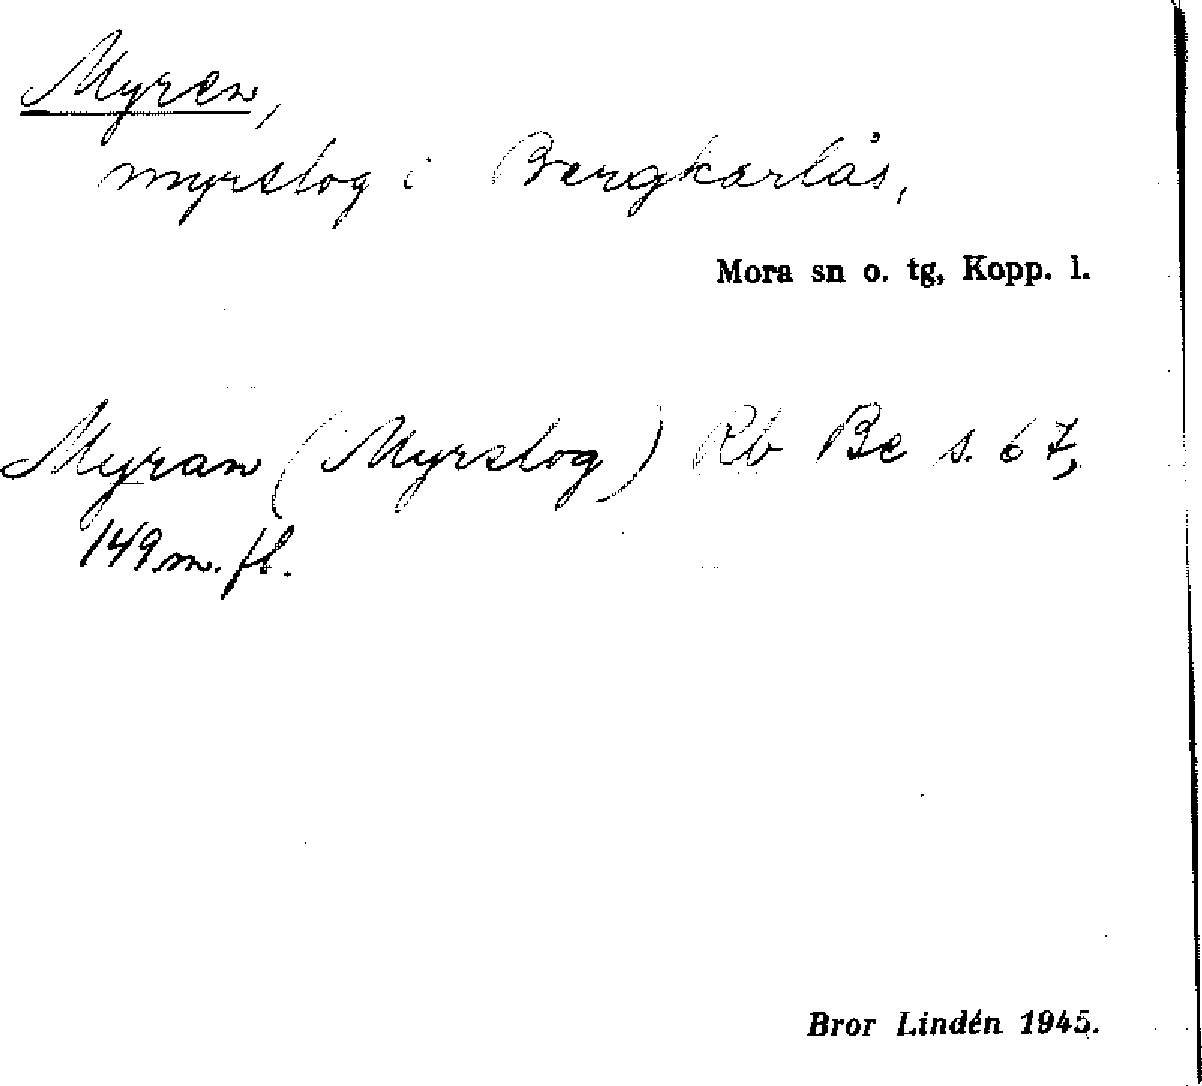 Myren,
myrslog i Bergkarlås,
Mora sn o. tg, Kopp. l.
Myran (Myrslog) Rb Be s. 67,
149 m. fl.
Bror Lindén 1945.